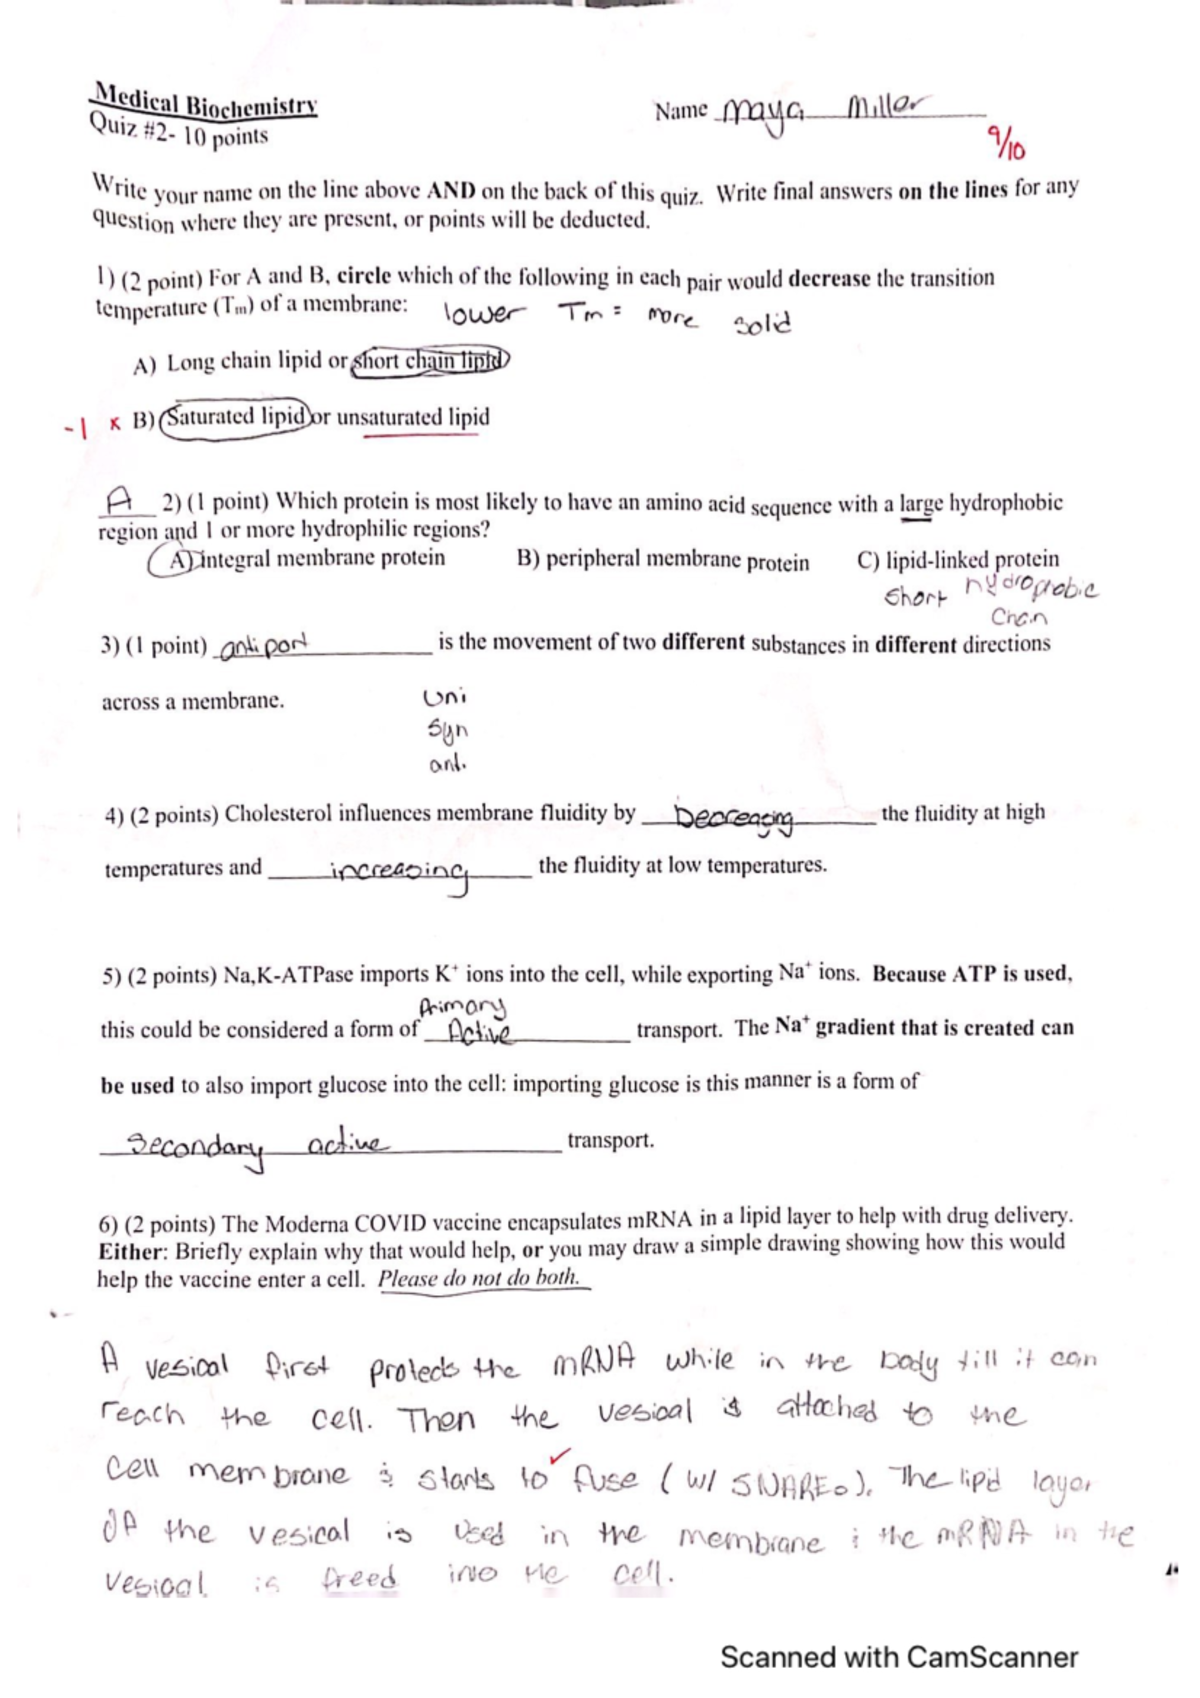 Medical Biochemistry
Quiz #2- 10 points
Name Maya Miller
9/10
Write your name on the line above AND on the back of this quiz. Write final answers on the lines for any
question where they are present, or points will be deducted.
1) (2 point) For A and B, circle which of the following in each pair would decrease the transition
temperature (Tm) of a membrane: lower Tm = more solid
A) Long chain lipid or short chain lipid
-1 x B) Saturated lipid or unsaturated lipid
A 2) (1 point) Which protein is most likely to have an amino acid sequence with a large hydrophobic
region and 1 or more hydrophilic regions?
A) integral membrane protein B) peripheral membrane protein C) lipid-linked protein
short hydrophobic
chain
3) (1 point) antiport is the movement of two different substances in different directions
across a membrane.
Uni
Syn
ant.
4) (2 points) Cholesterol influences membrane fluidity by Decreasing the fluidity at high
temperatures and increasing the fluidity at low temperatures.
5) (2 points) Na,K-ATPase imports K⁺ ions into the cell, while exporting Na⁺ ions. Because ATP is used,
Primary
this could be considered a form of Active transport. The Na⁺ gradient that is created can
be used to also import glucose into the cell: importing glucose is this manner is a form of
Secondary active transport.
6) (2 points) The Moderna COVID vaccine encapsulates mRNA in a lipid layer to help with drug delivery.
Either: Briefly explain why that would help, or you may draw a simple drawing showing how this would
help the vaccine enter a cell. Please do not do both.
A vesical first protects the mRNA while in the body till it can
reach the cell. Then the vesical is attached to the
Cell membrane & starts to fuse (w/ SNAREs). The lipid layer
of the vesical is used in the membrane & the mRNA in the
Vesical is freed into the cell.
Scanned with CamScanner